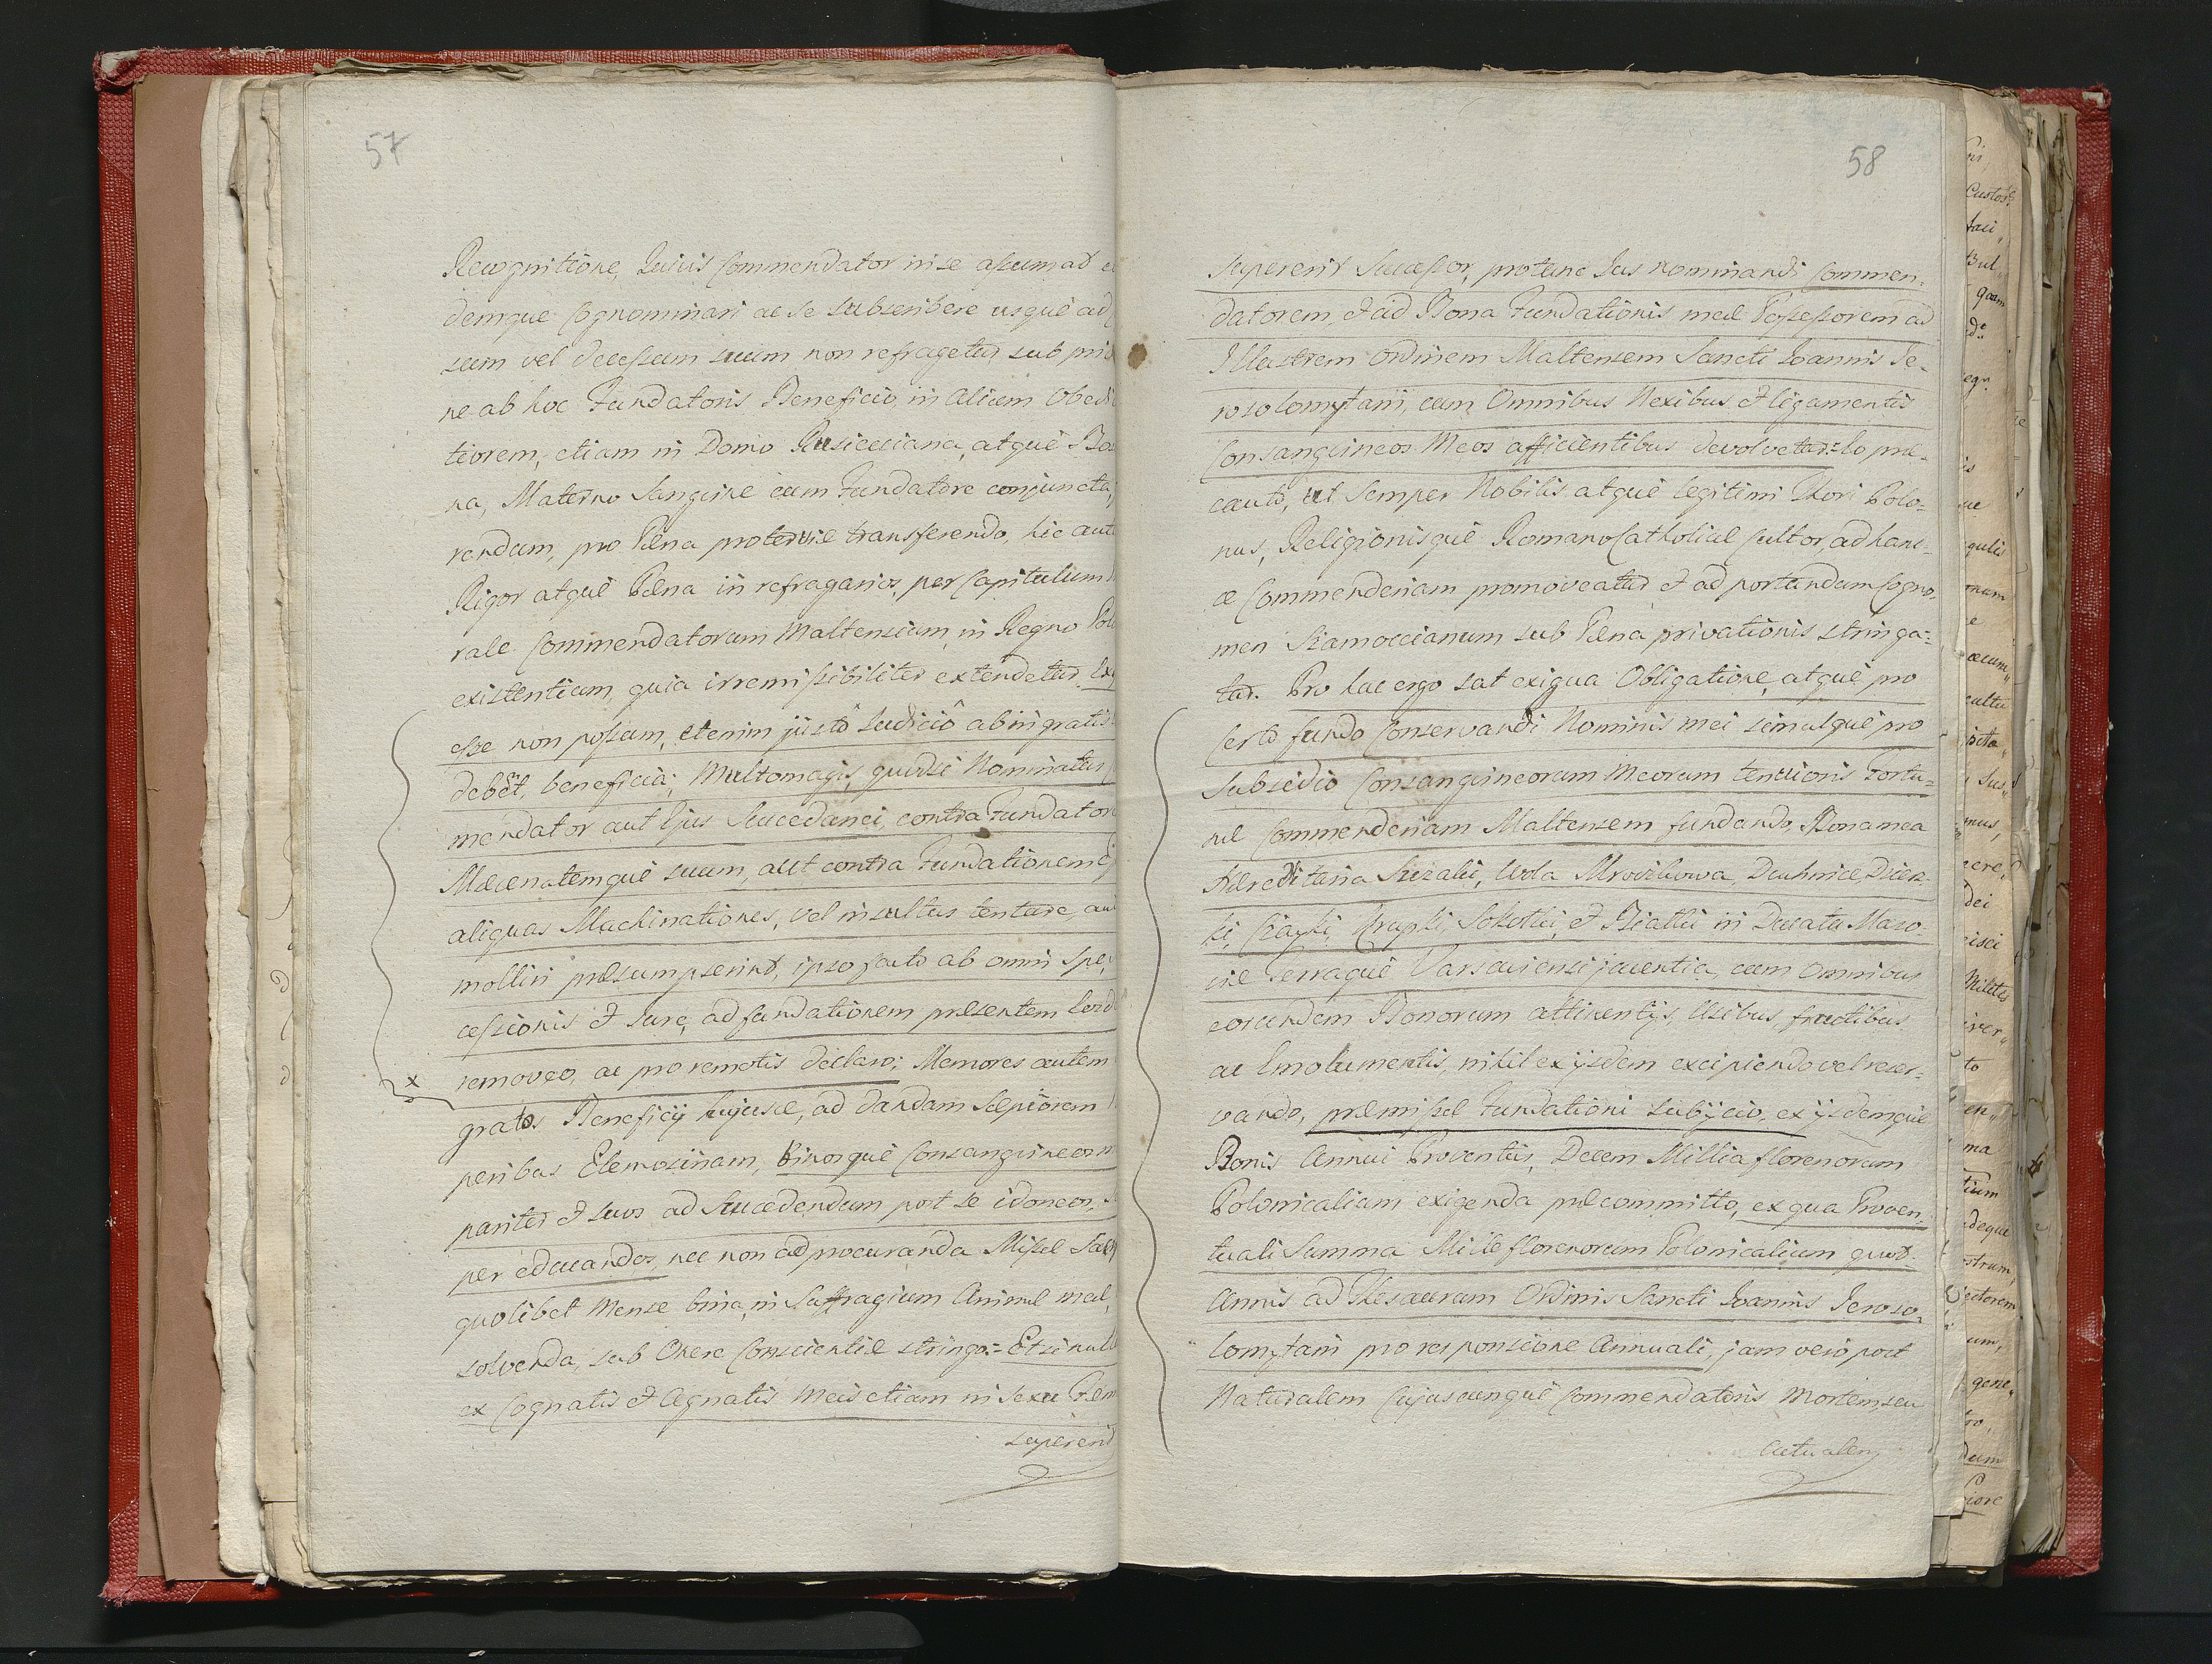 57
Recognitione, Quivis Commendator in se assumat e
demque Cognominari ac se Subscribere usquè ad
sum vel decessum suum non refragetur sub pri
ne ab hoc Fundatoris Beneficio in alium Obedi
tiorem, etiam in Domo Rusieciana, atquè Bo
na, Materno Sanguine cum Fundatore conjuncta,
rendum, pro Pœna proterviæ transferendo, hic aut
Rigor atquè Pœna in refragarios, per Capitulum
rale Commendatorum Maltensium in Regno Pol
existentium, quia irremissibiliter extendetur. Ex
esse non possum, etenim justô Judiciô ab ingratis
debët, beneficia; Multomagis, quodsi Nominatus
mendator aut Ejus Succedanei, contra Fundator
Mæcenatemquè suum, aut contra Fundationem Ej
aliquas Machinationes, vel insultus tentare, au
molliri præsumpserint, ipso facto ab omni Spe,
cessionis et Jure, ad fundationem præsentem
removeo, ac pro remotis declaro; Memores autem
x
gratos Beneficij hujusce, ad dandam sæpiorem
peribus Elemosinam, binosquè Consanguineos
pariter et suos ad Succedendum post se idoneos,
per educandos, nec non ad procuranda Missæ Sac
quolibet Mense bina, in Suffragium Animæ meæ,
solvenda, sub Onere Conscientiæ stringo:= Et si null
ex Cognatis et Agnatis Meis etiam in Sexu Fœm
superend
58
supererit Successor, protunc Jus nominandi Commen-
datorem, et ad Bona Fundationis meæ Possessorem ad
Illustrem Ordinem Maltensem Sancti Joannis Je-
rosolomytani, cum Omnibus Nexibus et ligamentis
Consanguineos Meos afficientibus devolvetur:= Eo præ-
cauto, ut Semper Nobilis atquè legitimi Thori Polo-
nus, Religionisquè Romano Catholicæ Cultor, ad hanc-
ce Commenderiam promoveatur et ad portandum Cogno-
men Szamoccianum sub Pœna privationis stringa-
tur. Pro hac ergo sat exigua Obligatione, atquè pro
Certo fundo Conservandi Nominis mei simulquè pro
Subsidio Consanguineorum Meorum tenuioris Fortu-
næ Commenderiam Maltensem fundando, Bona mea
Hæreditaria Suzalii, Wola Mrozikowa, Duchnice,
ki, Czayki, Krupki, Sokołki, et Białki in Ducatu Maso-
viæ Terraquè Varsaviensi jacentia, cum Omnibus
eorundem Bonorum attinentijs, Usibus, fructibus
ac Emolumentis, nihil ex ijsdem excipiendo vel reser-
vando, præmissæ Fundationi subijcio, ex ijsdemquè
Bonis Annui Proventus, Decem Millia florenorum
Polonicalium exigenda præcommitto, ex qua Proven-
tuali Summa Mille florenorum Polonicalium quot-
Annis ad Thesaurum Ordinis Sancti Joannis Jeroso-
lomytani pro responsione Annuali, jam verò post
Naturalem Cujuscunquè Commendatoris Mortem, seu
Actualem